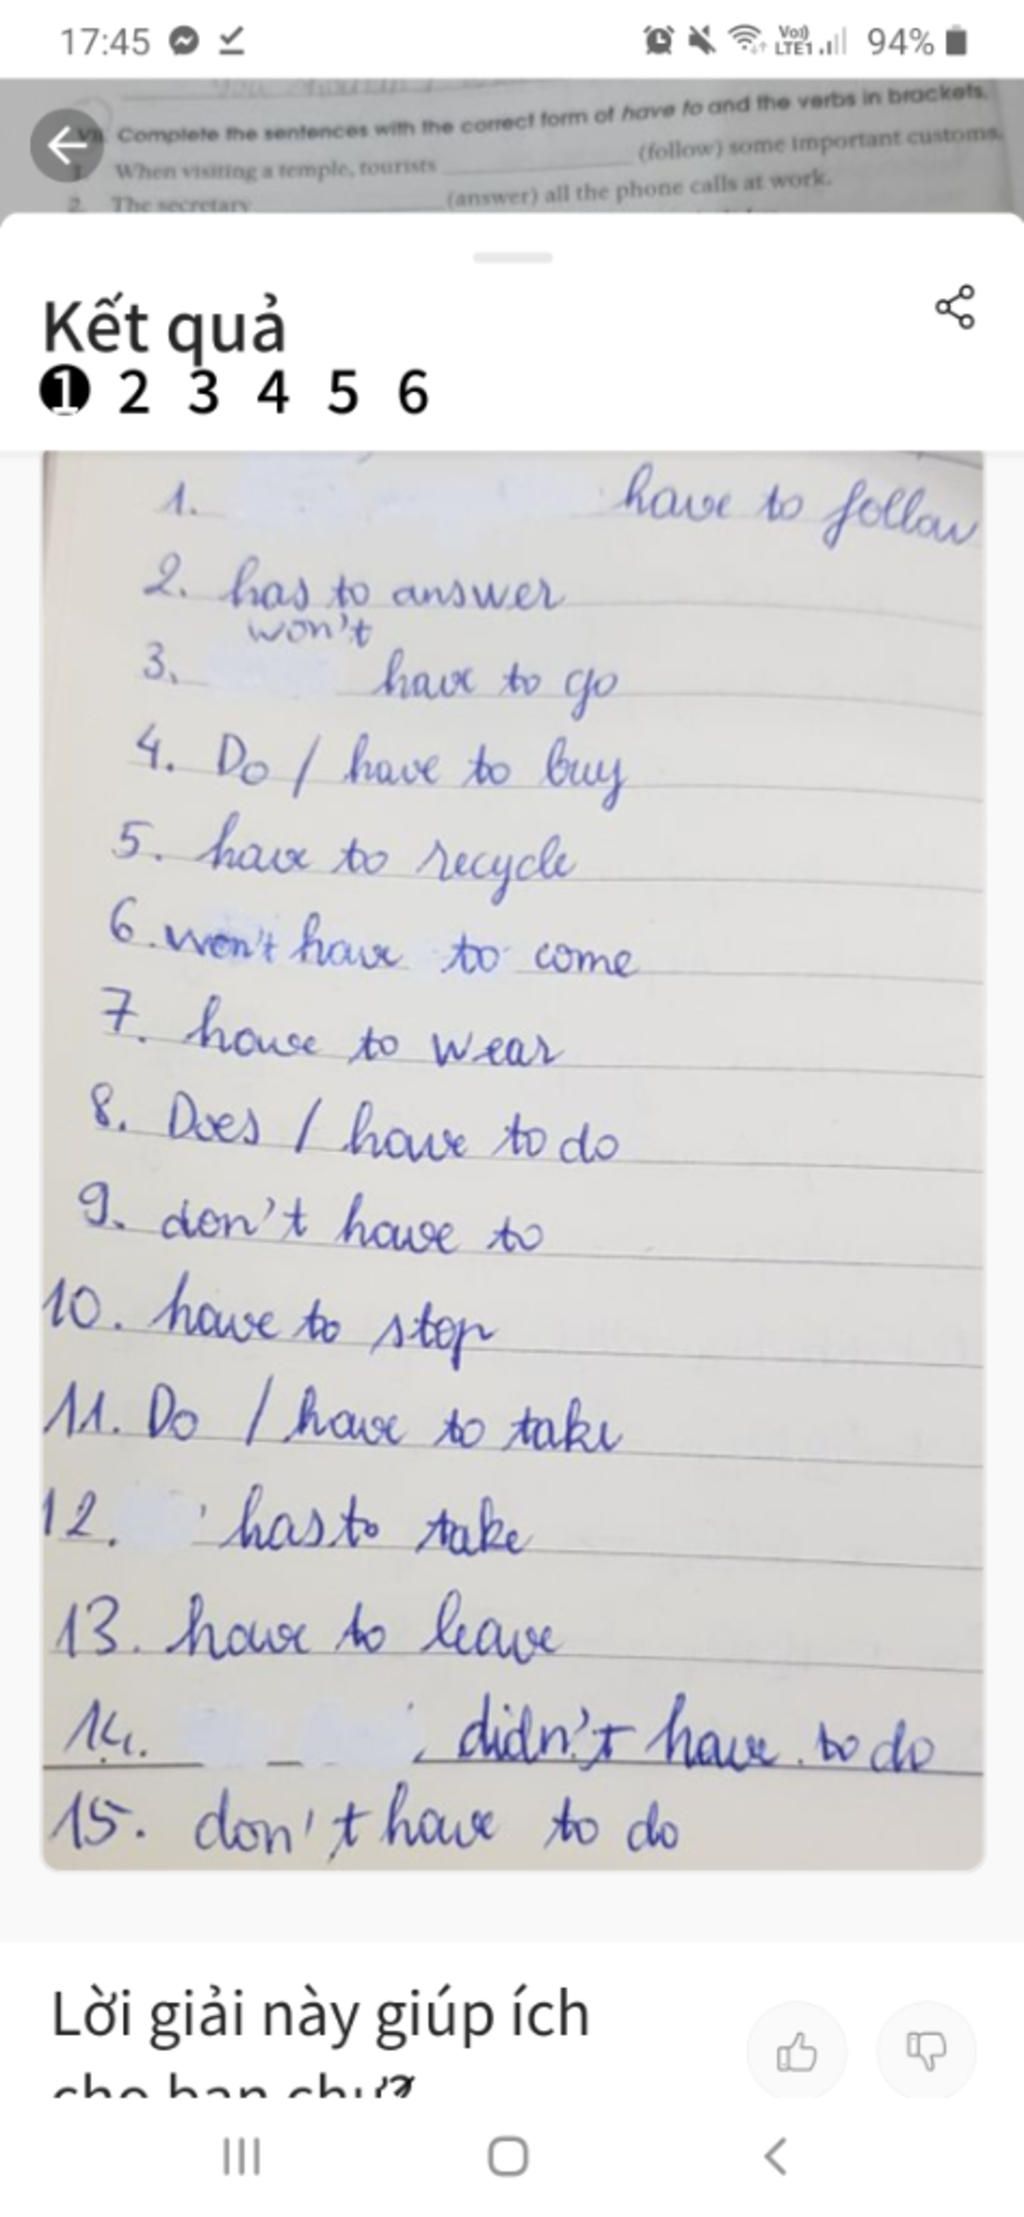 17:45 94%
VoI) LTE1
VII. Complete the sentences with the correct form of have to and the verbs in brackets.
1. When visiting a temple, tourists (follow) some important customs.
2. The secretary (answer) all the phone calls at work.
Kết quả
1 2 3 4 5 6
1. have to follow
2. has to answer
won't
3. have to go
4. Do / have to buy
5. have to recycle
6. won't have to come
7. have to wear
8. Does / have to do
9. don't have to
10. have to stop
11. Do / have to take
12. has to take
13. have to leave
14. didn't have to do
15. don't have to do
Lời giải này giúp ích
cho bạn chứ?